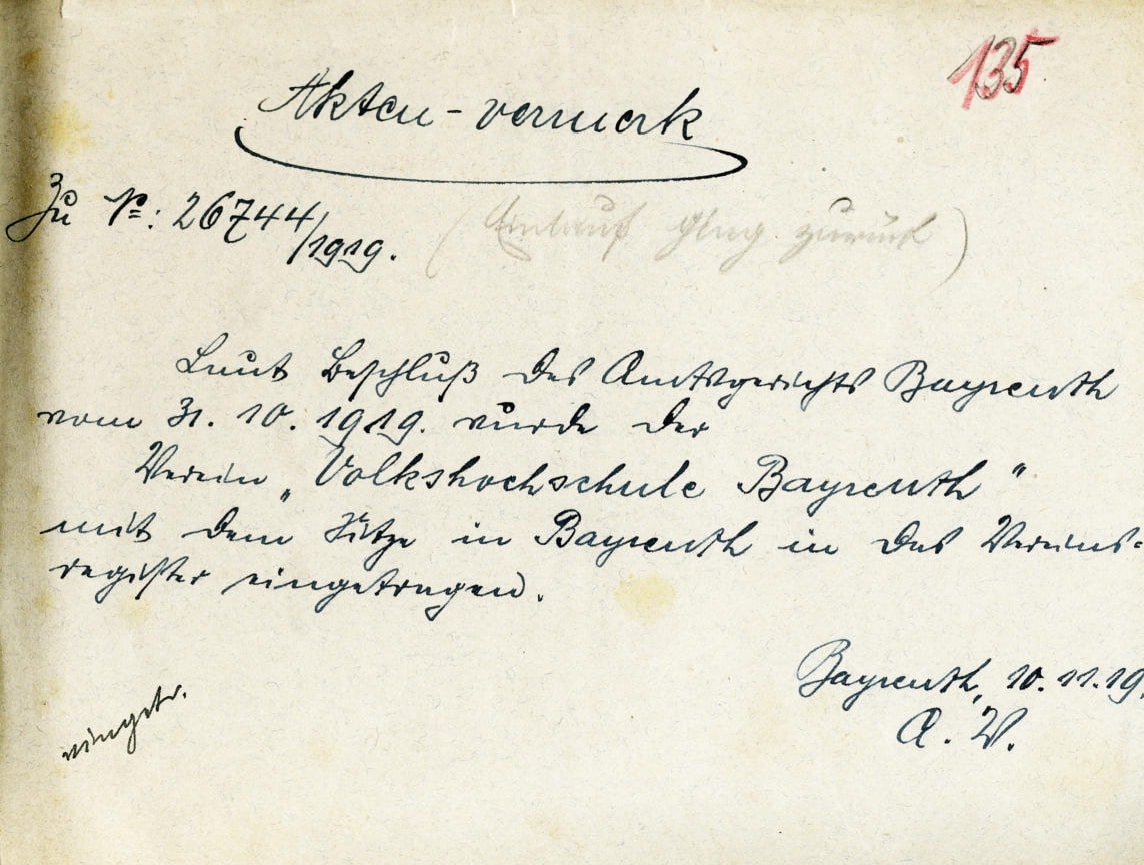 135
Akten-vermerk
Zu No: 26744/1919.
(Einlauf ging zurück)
Laut Beschluß des Amtsgerichts Bayreuth
vom 31. 10. 1919. wurde der
Verein „Volkshochschule Bayreuth"
mit dem Sitze in Bayreuth in das Vereins-
register eingetragen.
Bayreuth, 10.11.19
A. V.
eingetr.